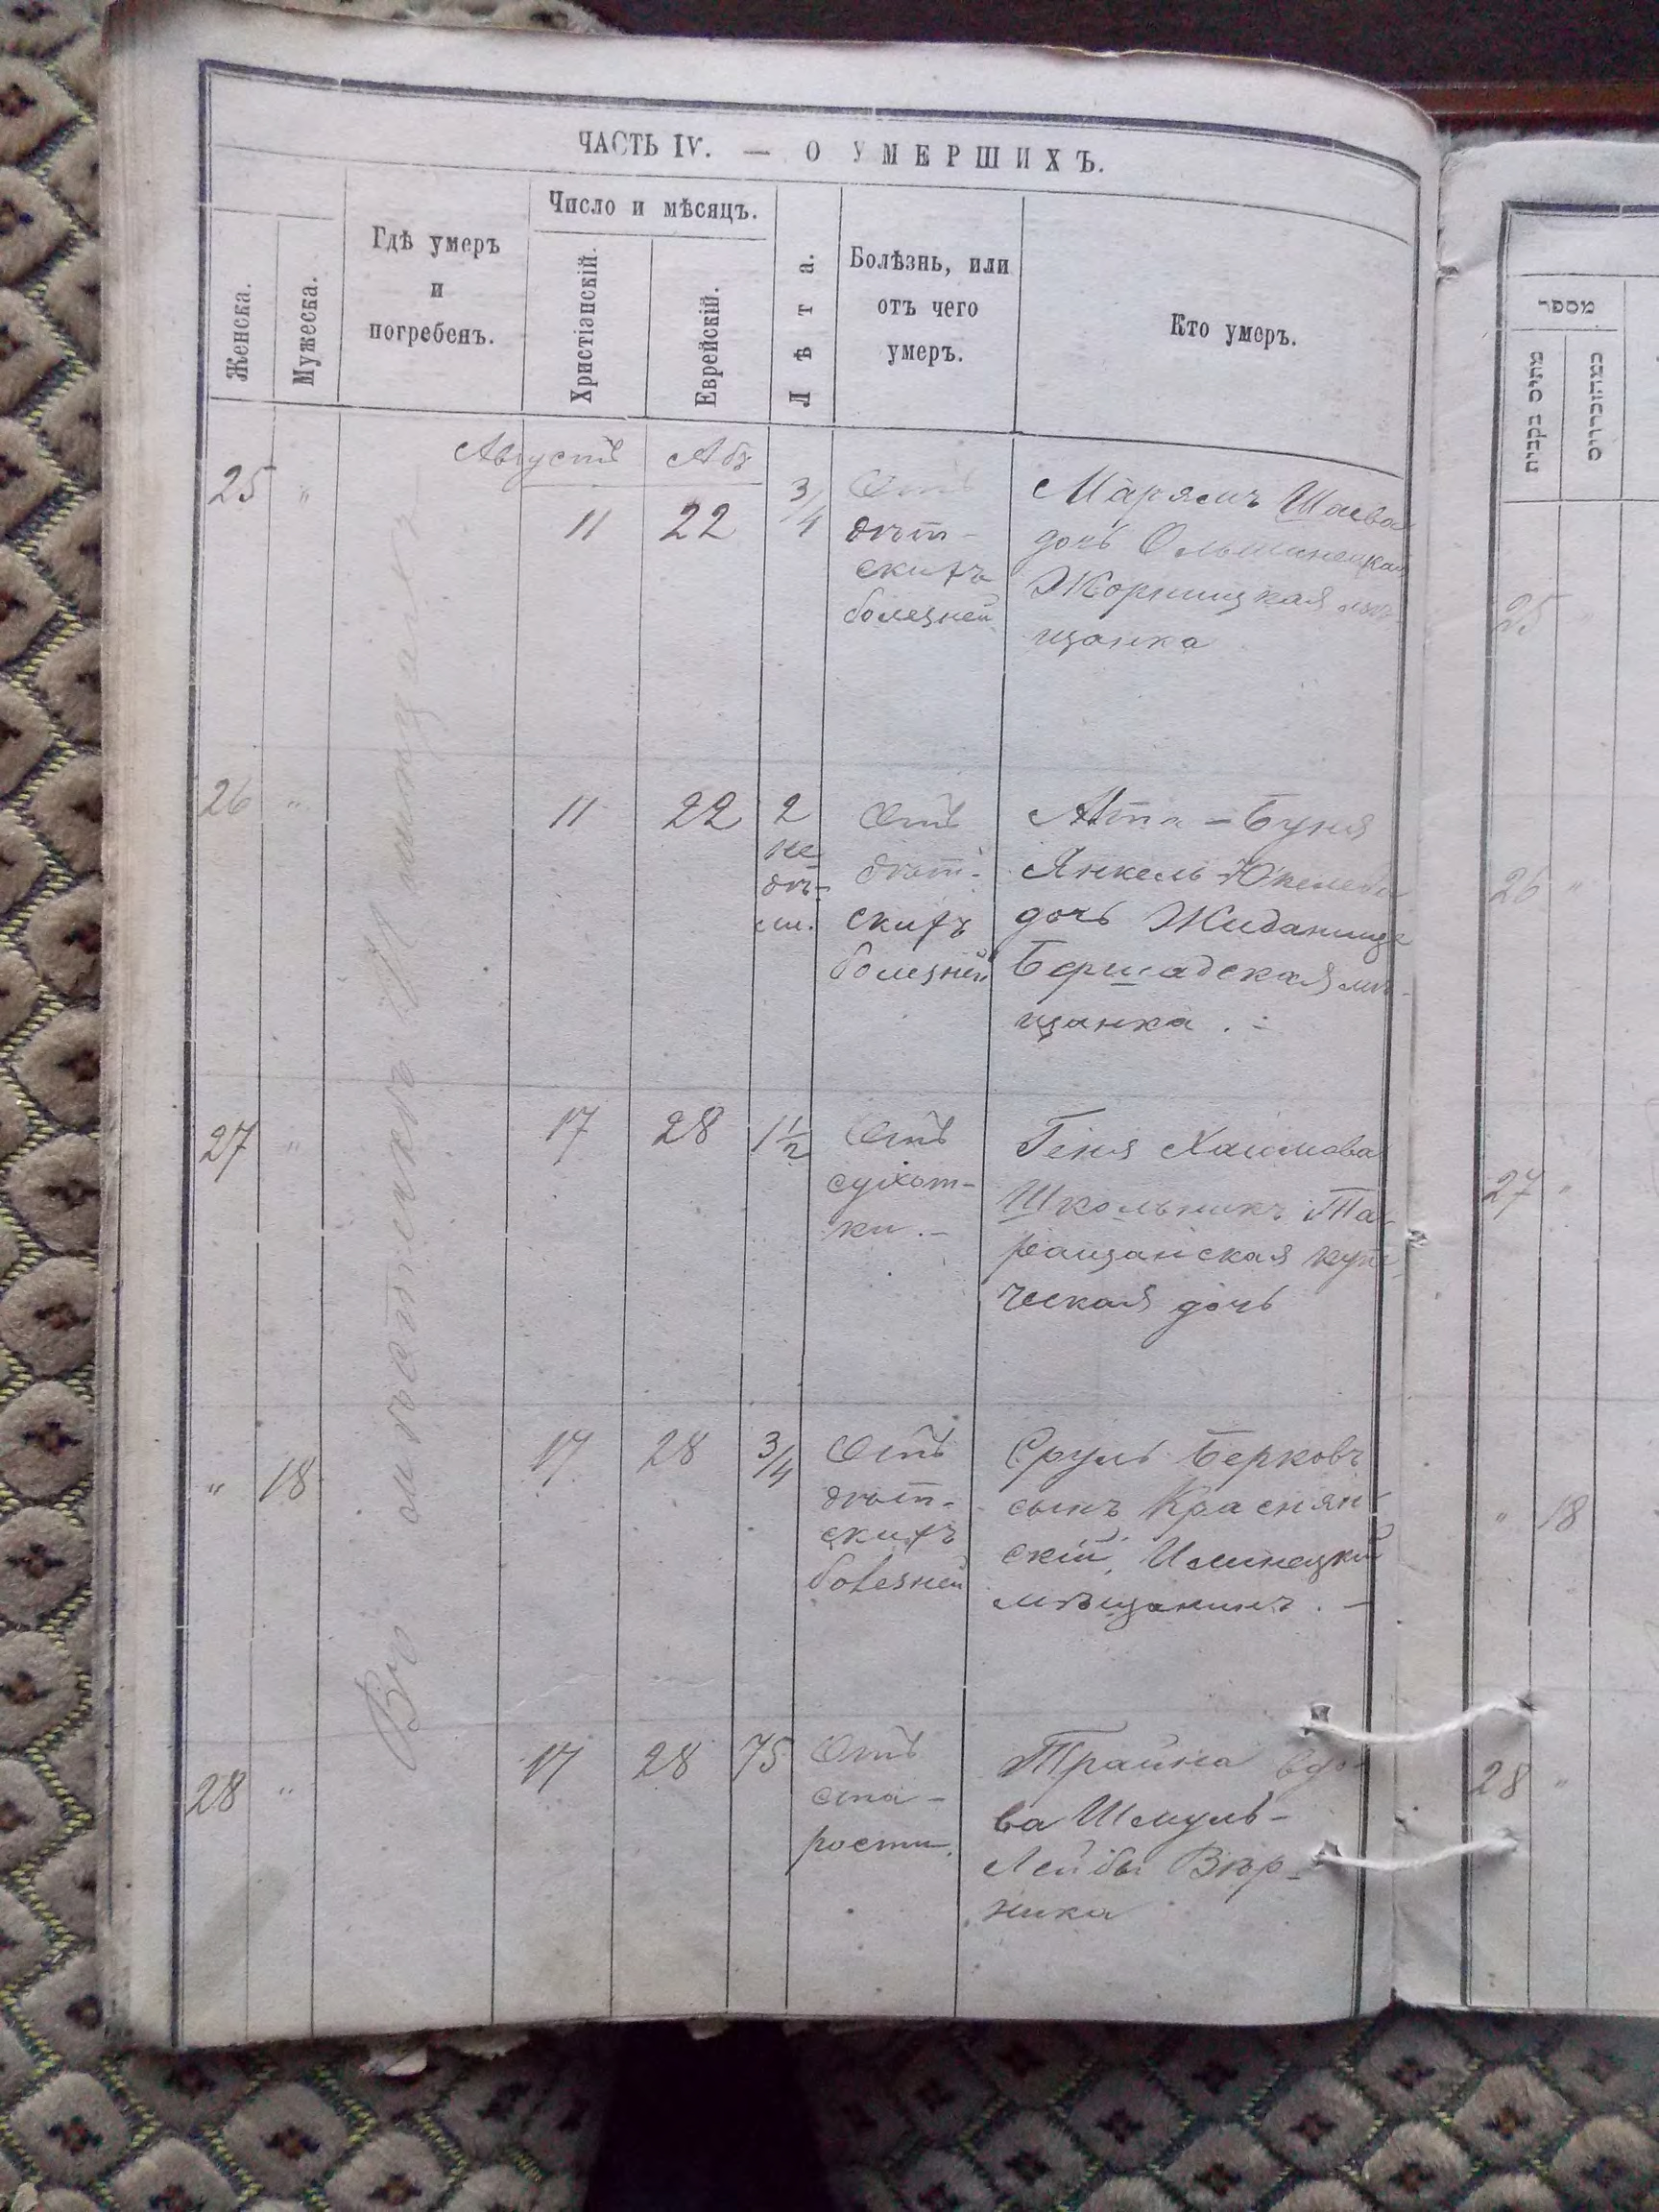 ЧАСТЬ IV. — О УМЕРШИХЪ.
Женска.
Мужеска.
Гдѣ умеръ
и
погребенъ.
Число и мѣсяцъ.
Христіанскій.
Еврейскій.
Лѣта.
Болѣзнь, или
отъ чего
умеръ.
Кто умеръ.
Августъ Абъ
25 "
11 22 3/4
Отъ
дѣт-
скихъ
болезней
Марямъ Шаева
дочь
Жорнищская мѣ
щанка
26 "
11 22
2
не
дѣ-
ли.
Отъ
дѣт-
скихъ
болезней
Буня
Янкель
дочь
Бершадская мѣ-
щанка . -
27 "
17 28 1 1/2
Отъ
сухот-
ки . -
Геня Хаимова
Школьникъ Та-
ращанская купе-
ческая дочь
" 18
17 28 3/4
Отъ
дѣт-
скихъ
болезней
Сруль Берковъ
сынъ Краснян-
скій, Илинецкій
мѣщанинъ . -
28 "
17 28 75
Отъ
ста-
рости.
Трайна вдо-
ва Шмуль-
Лейбы
ника
Въ мѣстечкѣ
מספר
25 "
26 "
27 "
" 18
28 "